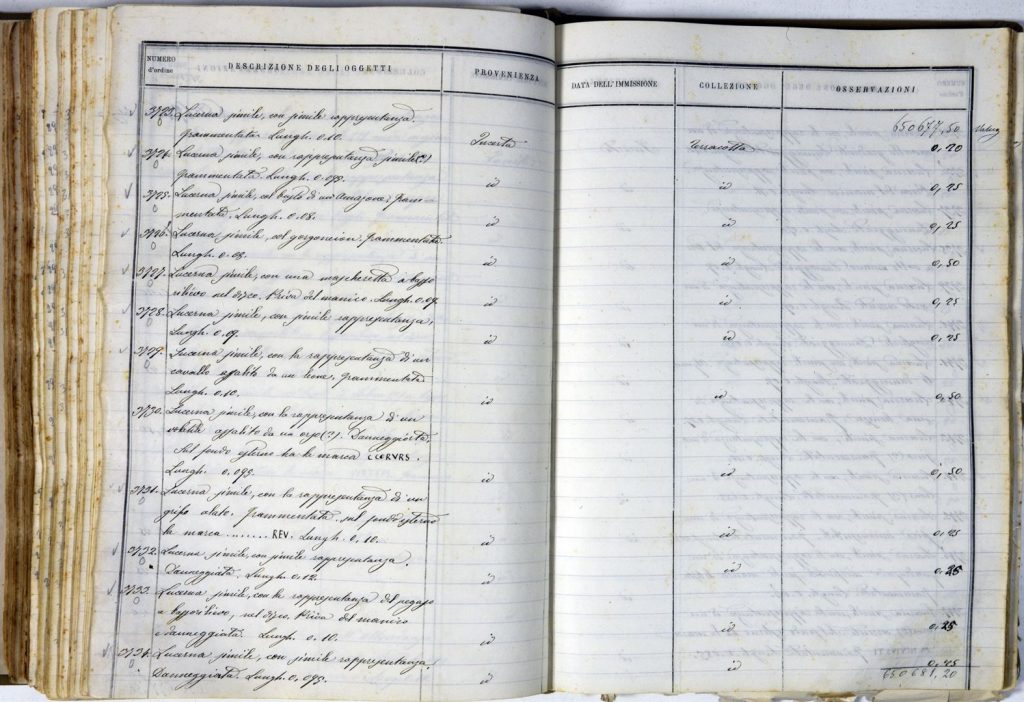 NUMERO d'ordine DESCRIZIONE DEGLI OGGETTI PROVENIENZA DATA DELL'IMMISSIONE COLLEZIONE OSSERVAZIONI
650677,50 Valore
3723. Lucerna simile, con simile rappresentanza.
frammentata. Lungh. 0.10. Incerta Terracotta 0,20
3724. Lucerna simile, con rappresentanza simile(?)
frammentata. Lungh. 0.095. id id 0,25
3725. Lucerna simile, col busto di un'Amazone; fram-
mentata. Lungh. 0.08. id id 0,25
3726. Lucerna simile, col gorgoneion. frammentata.
Lungh. 0.08. id id 0,50
3727. Lucerna simile, con una mascheretta a basso
rilievo nel disco. Priva del manico. Lungh. 0.09. id id 0,25
3728. Lucerna simile, con simile rappresentanza.
Lungh. 0.09. id id 0,25
3729. Lucerna simile, con la rappresentanza di un
cavallo assalito da un leone, frammentata
Lungh. 0.10. id id 0,50
3730. Lucerna simile, con la rappresentanza di un
volatile assalito da un orso(?). Danneggiata.
Sul fondo esterno ha la marca
Lungh. 0.095. id id 0,50
3731. Lucerna simile, con la rappresentanza di un
grifo alato. frammentata. sul fondo esterno
la marca ........ REV. Lungh. 0.10. id id
3732. Lucerna simile, con simile rappresentanza.
Danneggiata. Lungh. 0.12. id id 0,25
3733. Lucerna simile, con la rappresentanza del pegaso
a bassorilievo, nel disco. Priva del manico
e danneggiata. Lungh. 0.10. id id 0,25
3734. Lucerna simile, con simile rappresentanza.
Danneggiata. Lungh. 0.095. id id
650681,20